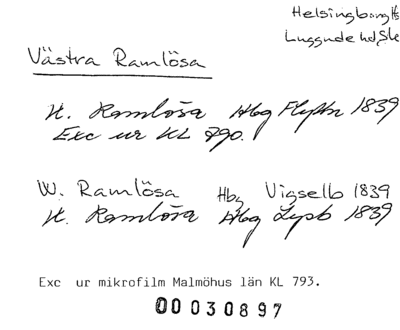 Helsingborg Hs
Luggude hd Sk
Västra Ramlösa
W. Ramlösa Hbg Flyttn 1839
Exc ur KL 790.
W. Ramlösa Hbg Vigselb 1839
W. Ramlösa Hbg Lysb 1839
Exc ur mikrofilm Malmöhus län KL 793.
00030897